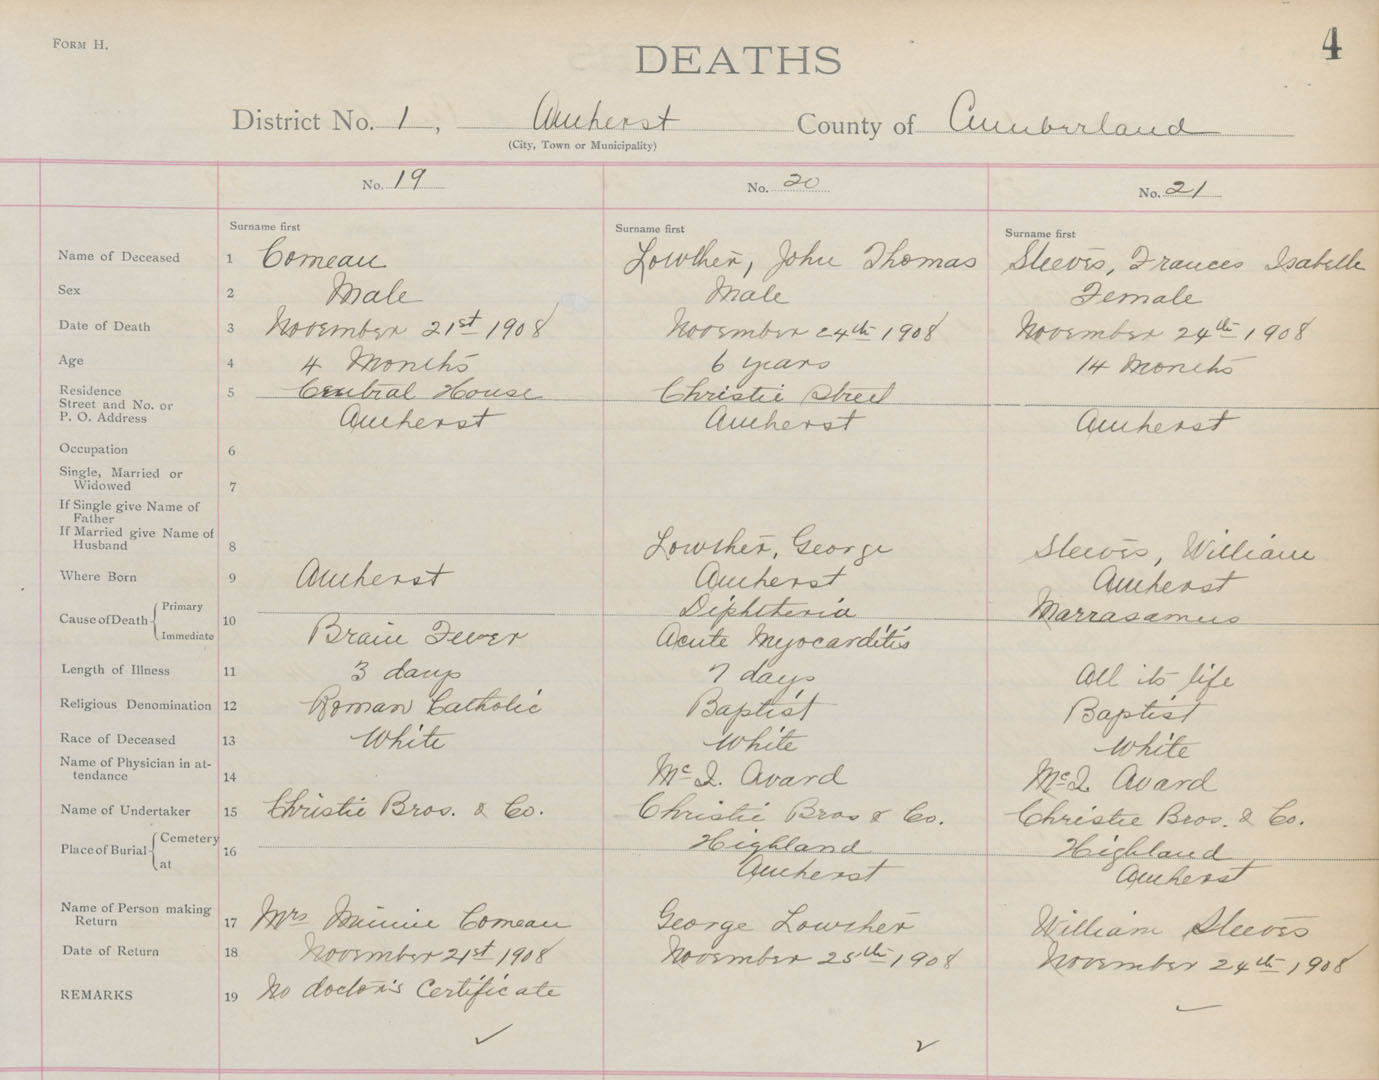 FORM H.
4
DEATHS
District No. 1, Amherst County of Cumberland
(City, Town or Municipality)
No. 19 No. 20 No. 21
Surname first Surname first Surname first
Name of Deceased 1 Comeau Lowther, John Thomas Sleeves, Frances Isabelle
Sex 2 Male Male Female
Date of Death 3 November 21st 1908 November 24th 1908 November 24th 1908
Age 4 4 Months 6 years 14 Months
Residence 5 Central House Christie Street
Street and No. or
P. O. Address Amherst Amherst Amherst
Occupation 6
Single, Married or
Widowed 7
If Single give Name of
Father
If Married give Name of
Husband 8 Lowther, George Sleeves, William
Where Born 9 Amherst Amherst Amherst
Cause of Death Primary 10 Diphtheria Marrasamus
Immediate Brain Fever Acute Myocarditis
Length of Illness 11 3 days 7 days All its life
Religious Denomination 12 Roman Catholic Baptist Baptist
Race of Deceased 13 White White White
Name of Physician in at-
tendance 14 McQ. Avard McQ. Avard
Name of Undertaker 15 Christie Bros. & Co. Christie Bros & Co. Christie Bros. & Co.
Place of Burial Cemetery 16 Highland Highland
at Amherst Amherst
Name of Person making
Return 17 Mrs Minnie Comeau George Lowther William Sleeves
Date of Return 18 November 21st 1908 November 25th 1908 November 24th 1908
REMARKS 19 No doctor's Certificate